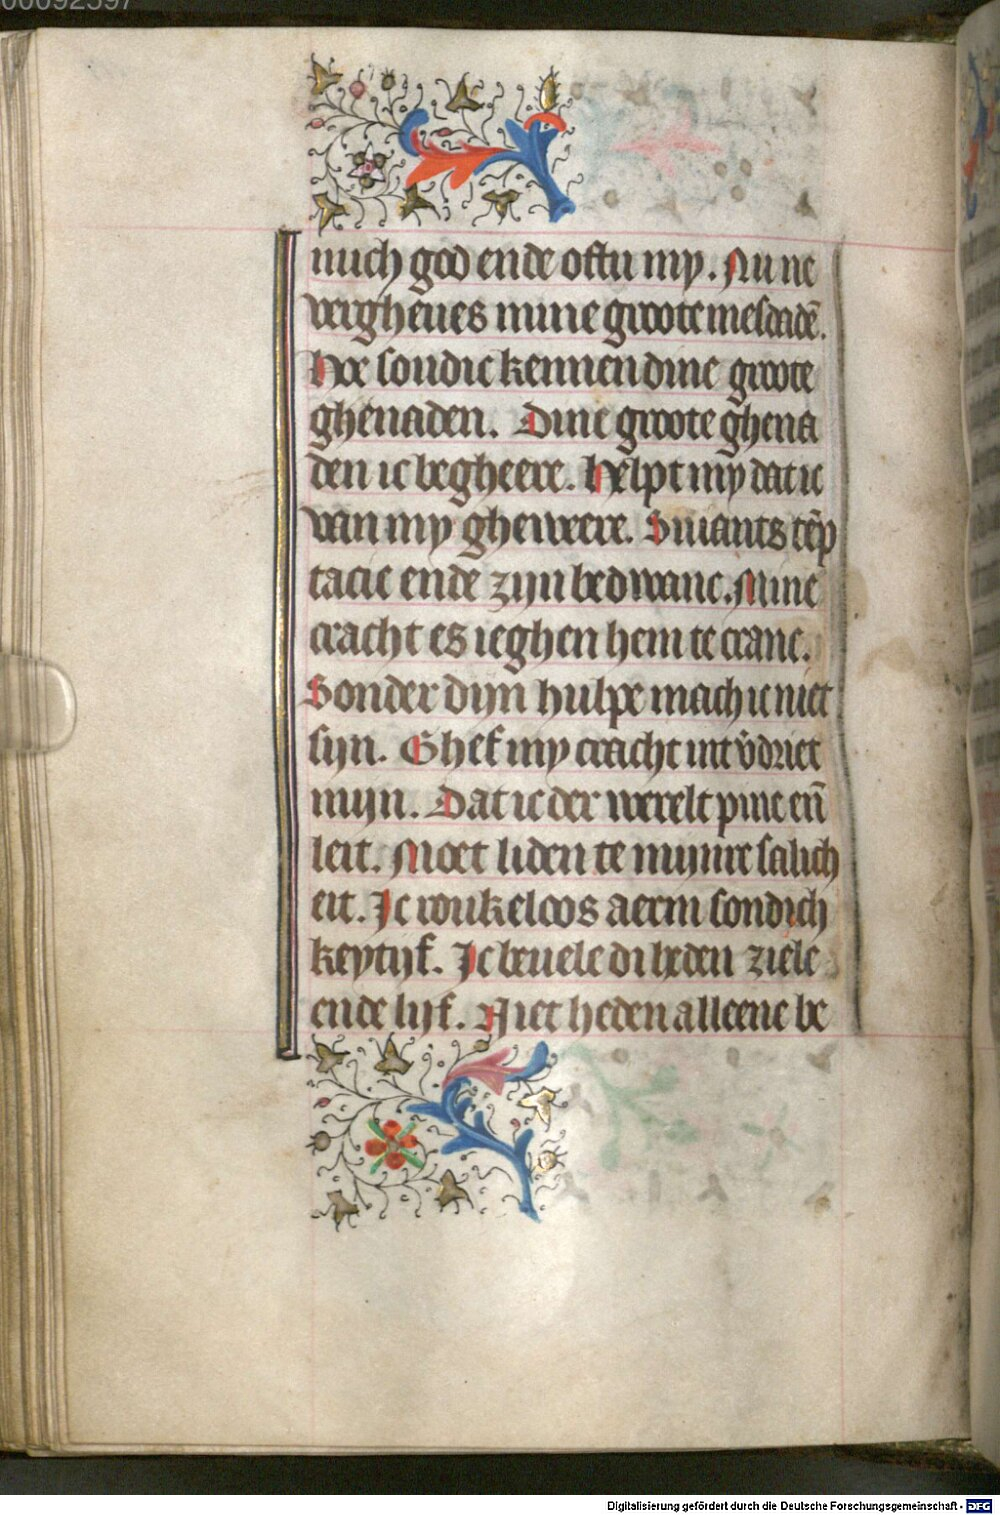 00092597
nuch god ende oftu my. Nu ne
vergheues mine groote mesdadē.
Hoe soudic kennen dine groote
ghenaden. Dine groote ghena
den ic begheere. Helpt my dat ic
van my gheweere. Sviants tēp
tacie ende zijn bedwanc. Mine
cracht es ieghen hem te cranc.
Sonder dijn hulpe mach ic niet
sijn. Ghef my cracht int v̄driet
mijn. Dat ic der werelt pine en̄
leit. Moet liden te mijnre salich
eit. Ic roukeloos aerm sondich
keytijf. Ic beuele di heden ziele
ende lijf. Niet heden alleene be
Digitalisierung gefördert durch die Deutsche Forschungsgemeinschaft - DFG